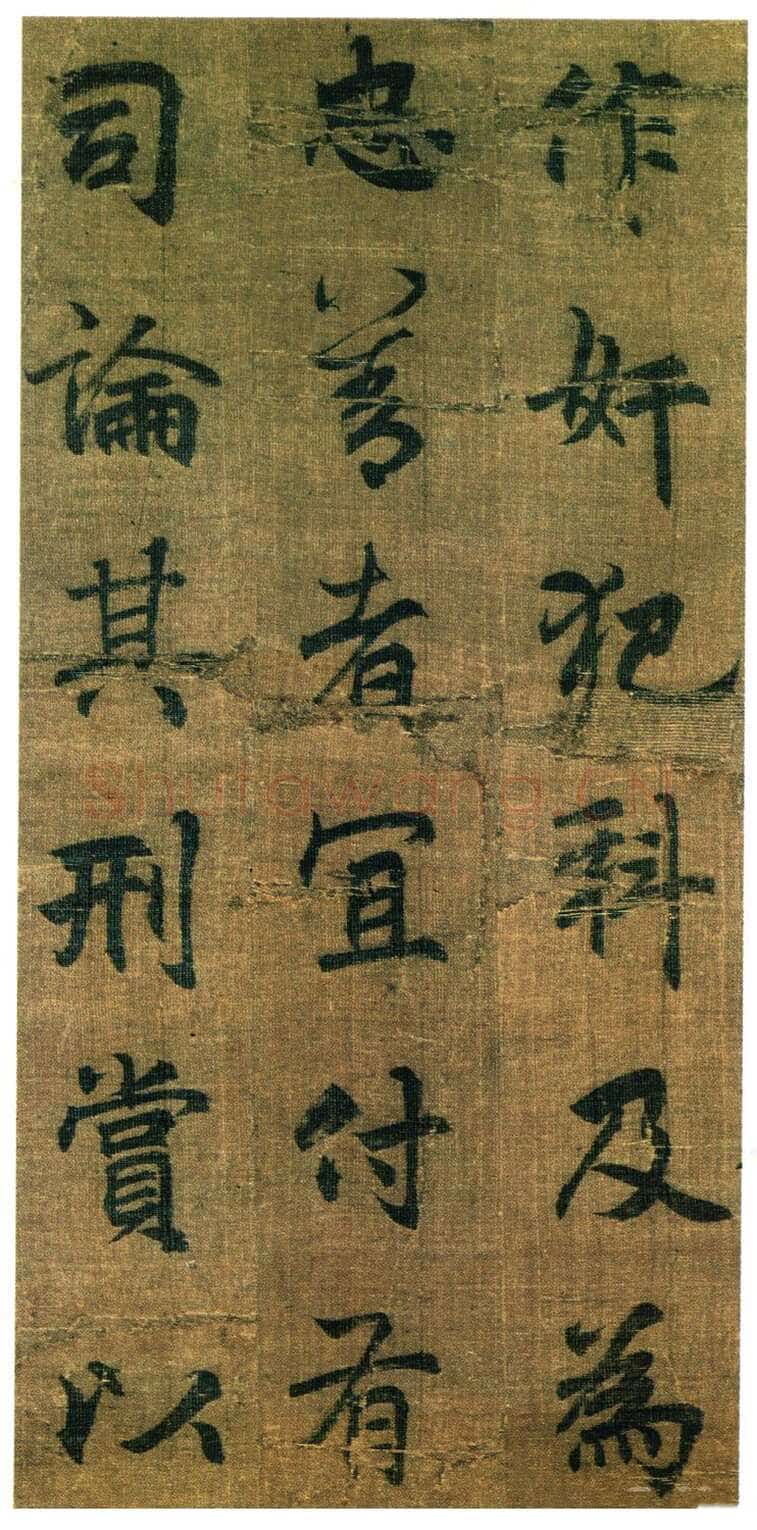 作奸犯科及為
忠善者宜付有
司論其刑賞以
Shufawang.CN